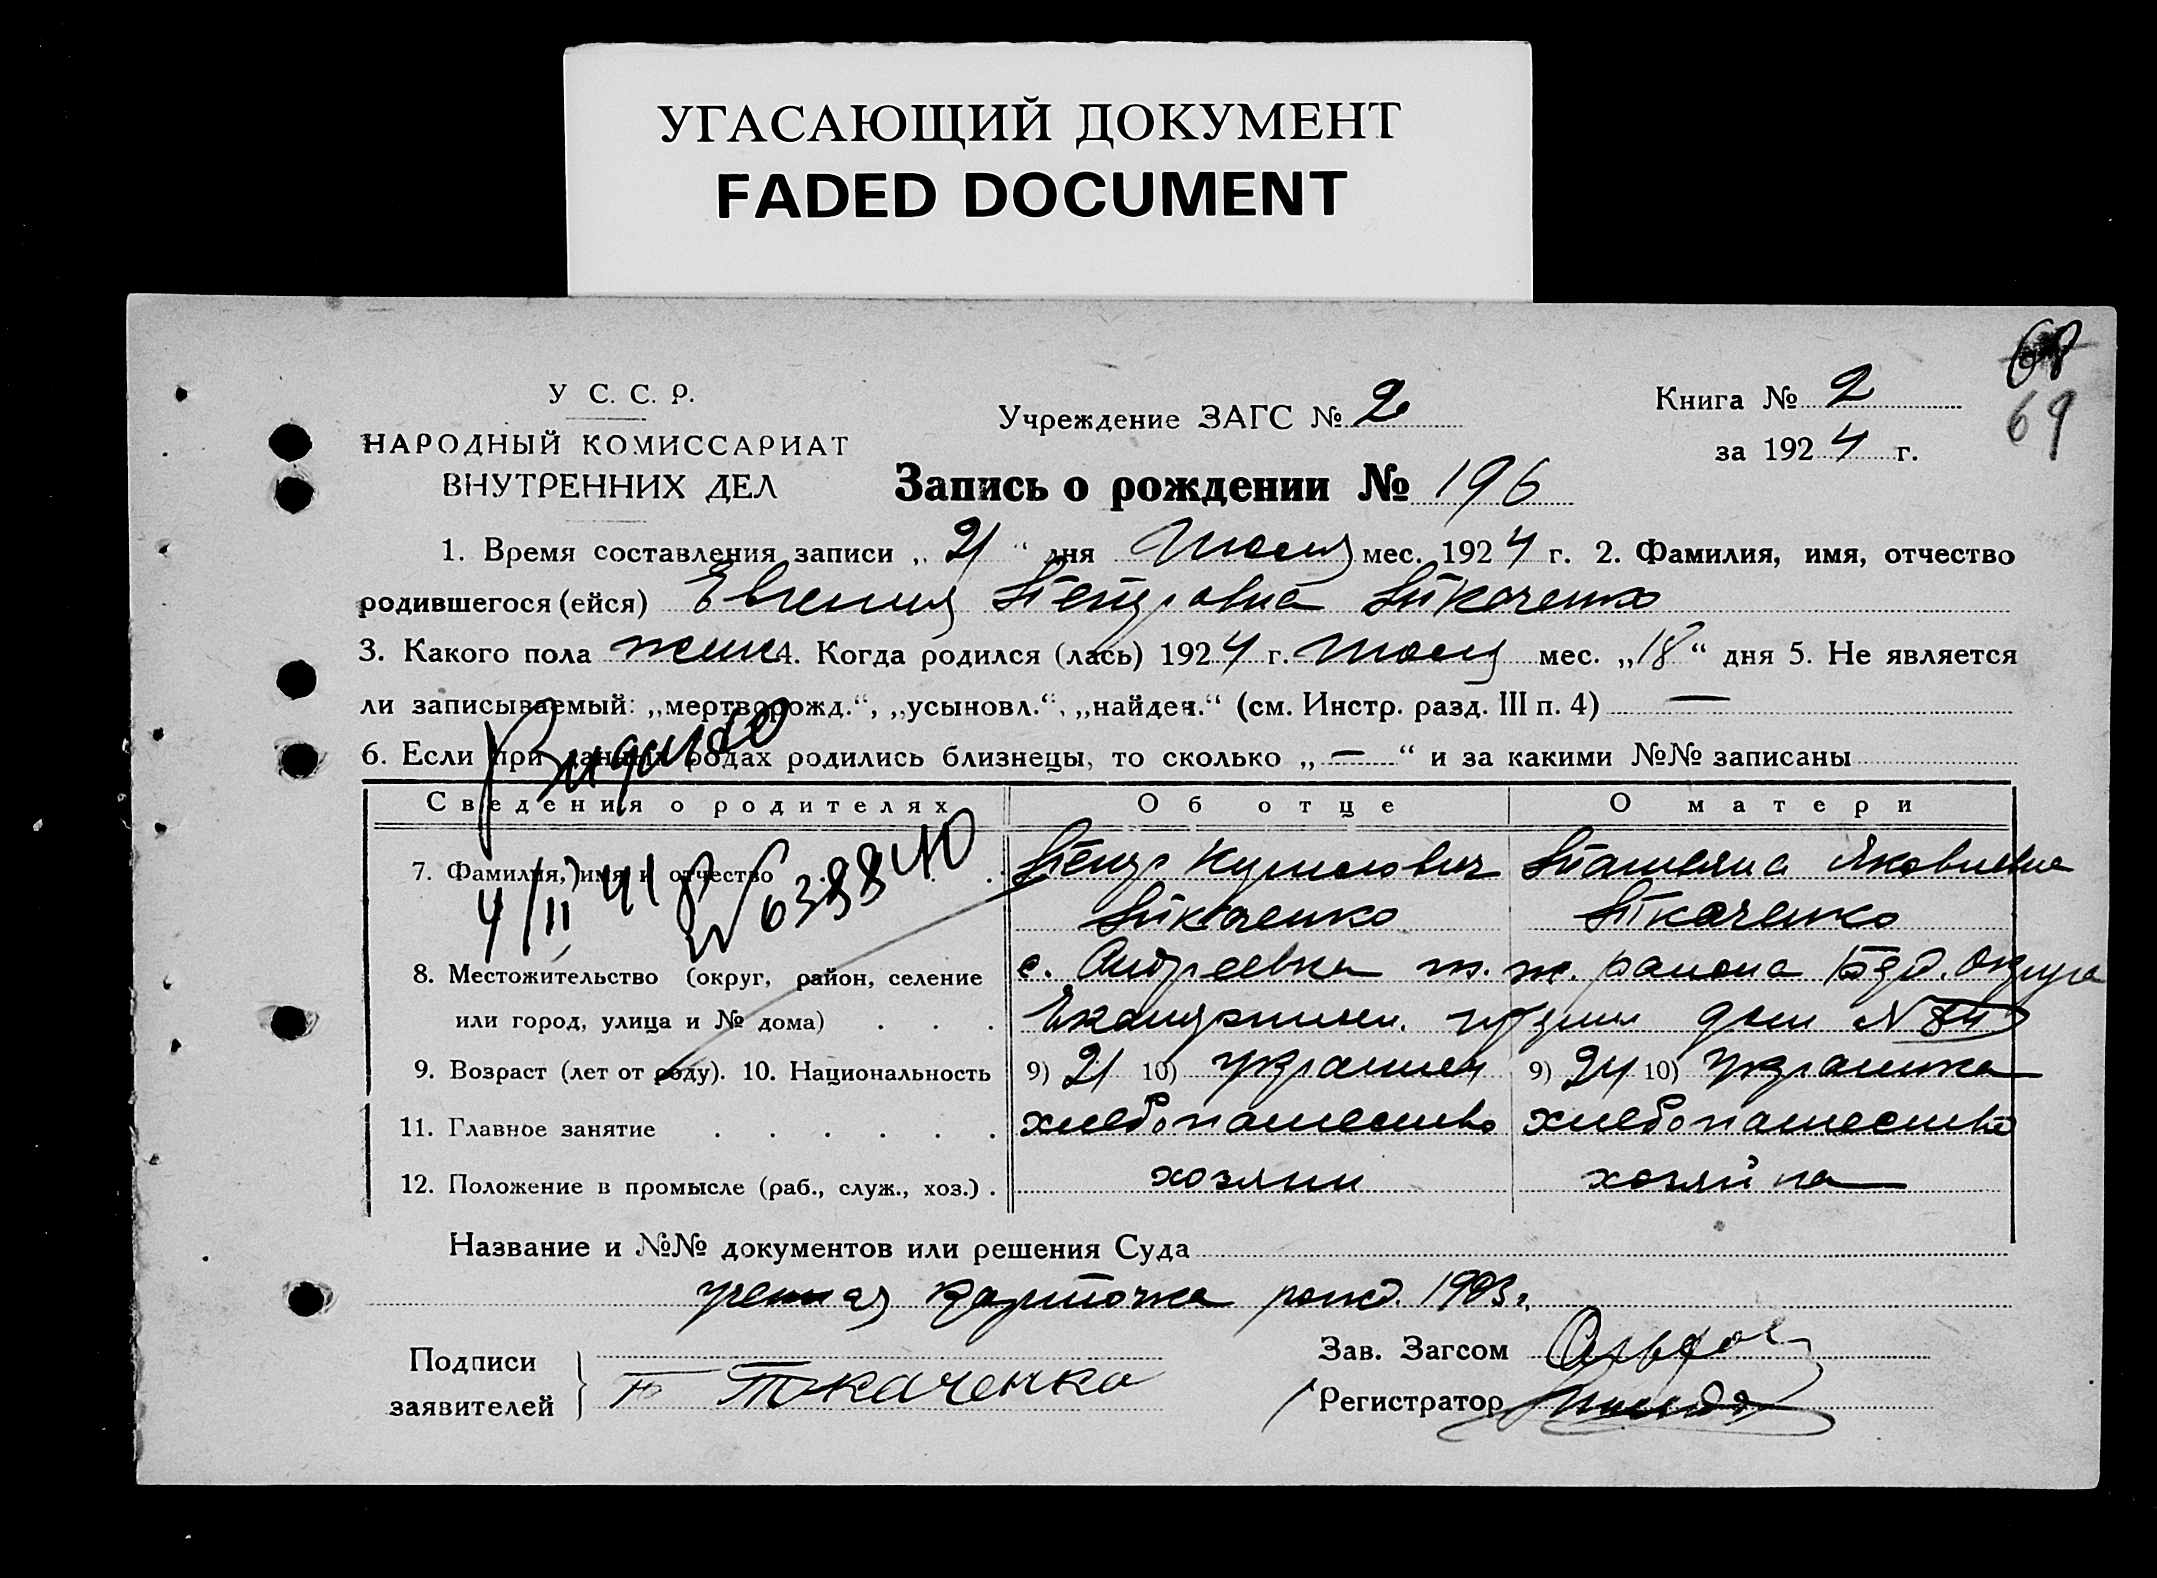 УГАСАЮЩИЙ ДОКУМЕНТ
FADED DOCUMENT
68
69
У С. С. Р.
НАРОДНЫЙ КОМИССАРИАТ
ВНУТРЕННИХ ДЕЛ
Учреждение ЗАГС № 2
Книга № 2
за 1924 г.
Запись о рождении № 196
1. Время составления записи „ 21 “ дня Июля мес. 1924 г. 2. Фамилия, имя, отчество
родившегося (ейся) Евгения Петровна Ткаченко
3. Какого пола жен 4. Когда родился (лась) 1924 г. июля мес. „18“ дня 5. Не является
ли записываемый: „мертворожд.“, „усыновл.“, „найден.“ (см. Инстр. разд. III п. 4) —
6. Если при данных родах родились близнецы, то сколько „ — “ и за какими №№ записаны
Сведения о родителях
Об отце
О матери
7. Фамилия, имя и отчество
Петр Ткаченко
Татьяна Яковлевна Ткаченко
4/II 41 638840
8. Местожительство (округ, район, селение
или город, улица и № дома)
с. Андреевка района Округа
дом №
9. Возраст (лет от роду). 10. Национальность
9) 21 10) украинец
9) 24 10) украинка
11. Главное занятие
хлебопашество
хлебопашество
12. Положение в промысле (раб., служ., хоз.)
хозяин
хозяйка
Название и №№ документов или решения Суда
учетная карточка рожд. 1903 г.
Подписи
заявителей
П Ткаченко
Зав. Загсом
Регистратор